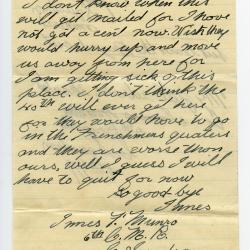 I don't know when this
will get mailed for I have
not got a cent now. Wish they
would hurry up and move
us away from here for
I am getting sick of this
place. I don't think the
40th will ever get here
for they would have to go
in the Frenchmens quaters
and they are worse than
ours, well I guess I will
have to quit for now
So good bye
Innes
Innes F. Munro
6th C. M. R.